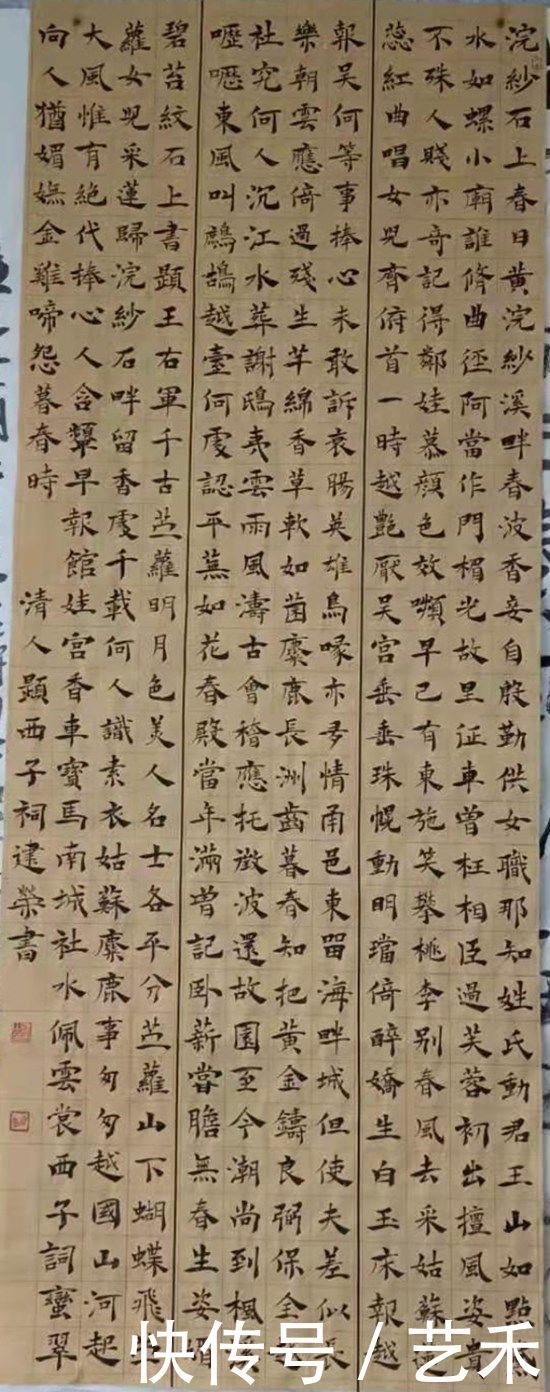 浣紗石上春日黄浣紗溪畔春波香妾自殷勤供女職那知姓氏動君王山如點黛
水如螺小廟誰脩曲徑阿當作門楣光故里征車曾枉相臣過芙蓉初出擅風姿貴
不殊人賤亦奇記得鄰娃慕顔色效嚬早已有東施笑攀桃李别春風去采姑蘇蓮
蕊紅曲唱女兒齊俯首一時越艷厭吴宫垂垂珠幌動明璫倚醉嬌生白玉床報越
報吴何等事捧心未敢訴衷腸英雄鳥喙亦多情甬邑東畱海畔城但使夫差似長
樂朝雲應倚過殘生芊綿香草軟如茵麋鹿長洲齒暮春知把黄金鑄良弼保全越
社究何人沉江水葬謝鴟夷雲雨風濤古會禬應托微波還故園至今潮尚到楓溪
嚦嚦東風叫鷓鴣越臺何處認平蕪如花春殿當年滿曾記卧薪嘗膽無春生姿媚
碧苔紋石上書題王右軍千古苎蘿明月色美人名士各平分苎蘿山下蝴蝶飛苎
蘿女兒采蓮歸浣紗石畔留香處千載何人識素衣姑蘇麋鹿事匆匆越國山河起
大風惟有絶代捧心人含顰早報館娃宫香車寳馬南城社水佩雲裳西子詞蠻翠
向人猶媚嫵金雞啼怨暮春時 清人題西子祠建榮書
快传号/艺禾